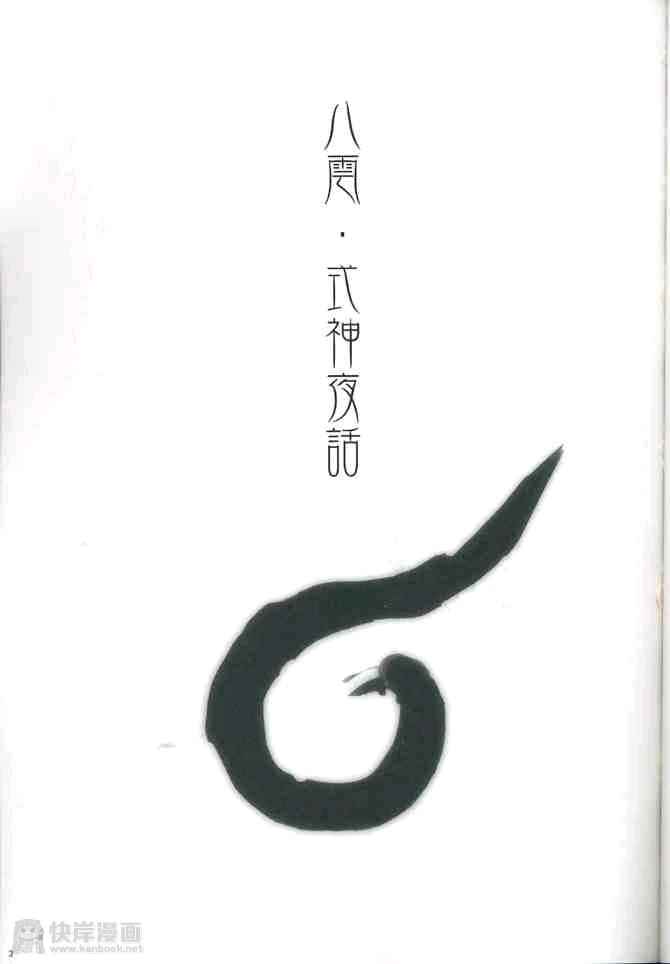 八雲・式神夜話
快岸漫画
www.kanbook.net
3